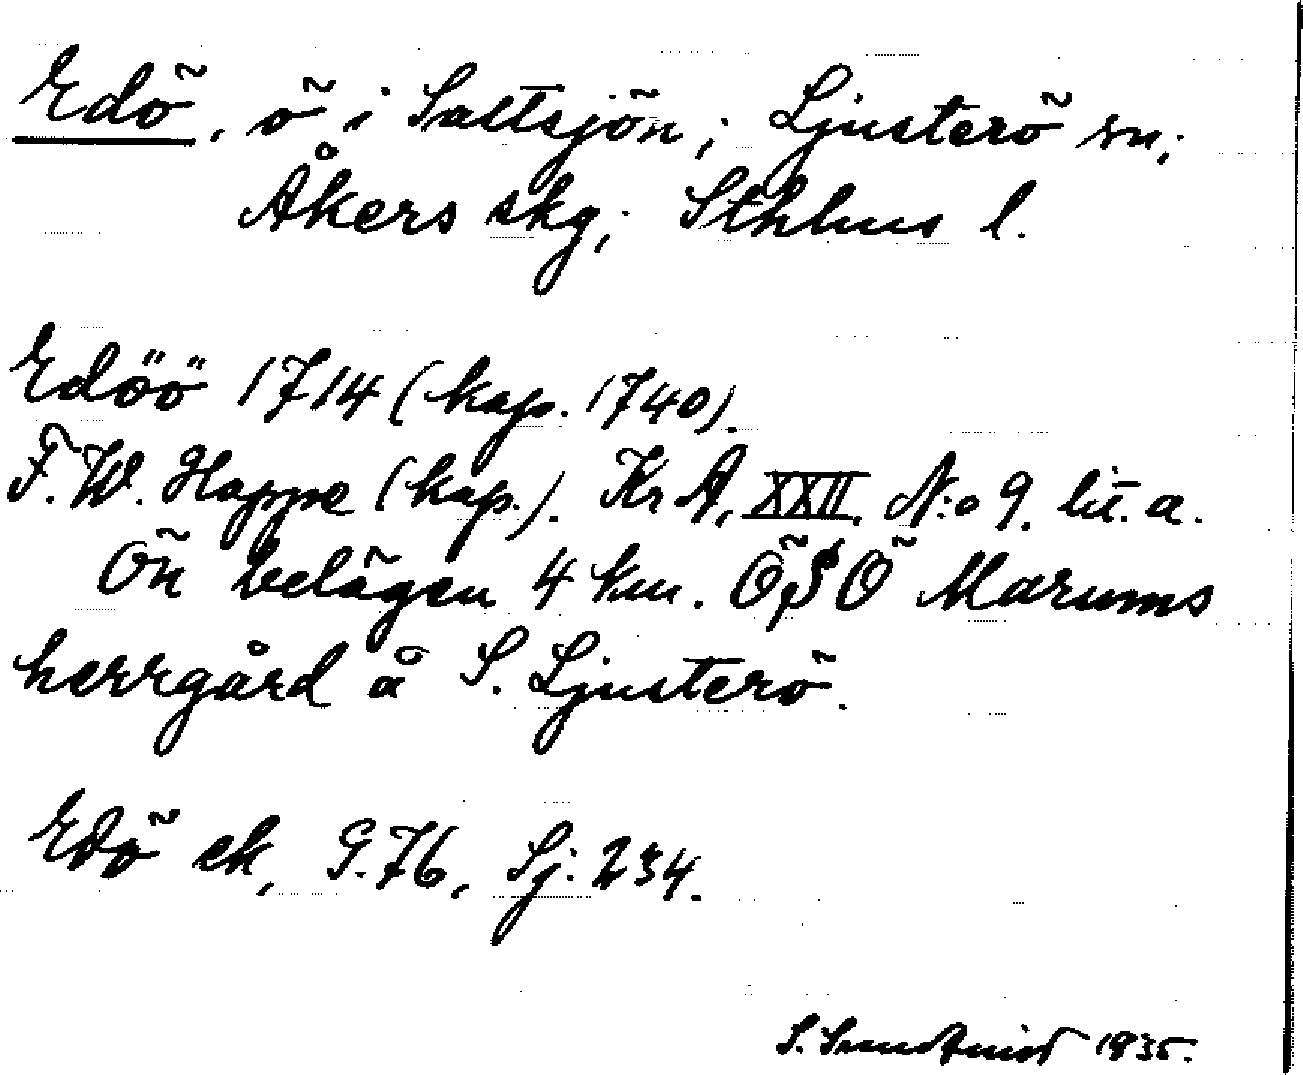 Edö, ö i Saltsjön; Ljusterö sn;
Åkers skg; Sthlms l.
Edöö 1714 (kap. 1740).
F. W. Happe (kap.). Kr A, XXII, N:o 9. lit. a.
Ön belägen 4 km. ÖSÖ Marums
herrgård å S. Ljusterö.
Edö ek, G. 76, Sj. 234.
S. Sundquist 1935.